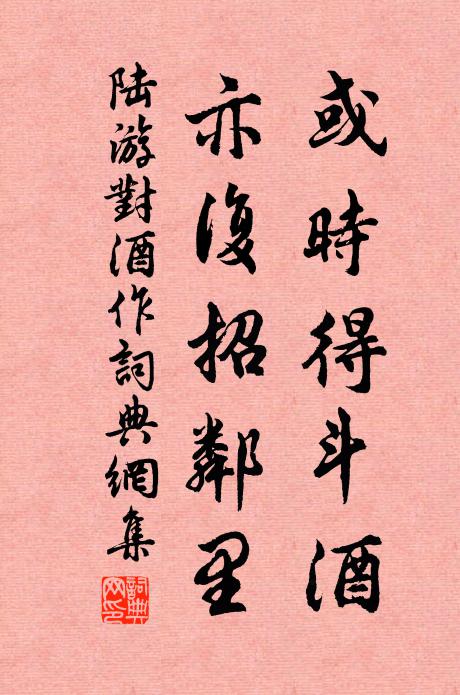 或時得斗酒
亦復招鄰里
陆游對酒作詞典網集
詞典网印